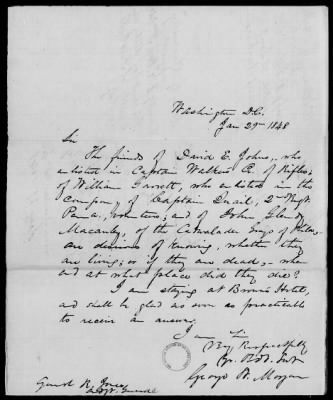 Washington D.C.
Jan 29th 1848
Sir
The friends of David E. Johns, who
enlisted in Captain Walkers R. of Rifles;
of William Garrett, who enlisted in the
company of Captain Quail, 2nd Regt
Penna, volunteers; and of John
of the Cadwalader Greys of Philada,
are desirous of knowing, whether they
are living; or if they are dead, when
and at what place did they die?
I am staying at Browns Hotel,
and shall be glad as soon as practicable
to receive an answer.
I am Sir
Very Respectfully
Yr. Obt. Svt
George W. Morgan
Genrl R. Jones
Adjt. General